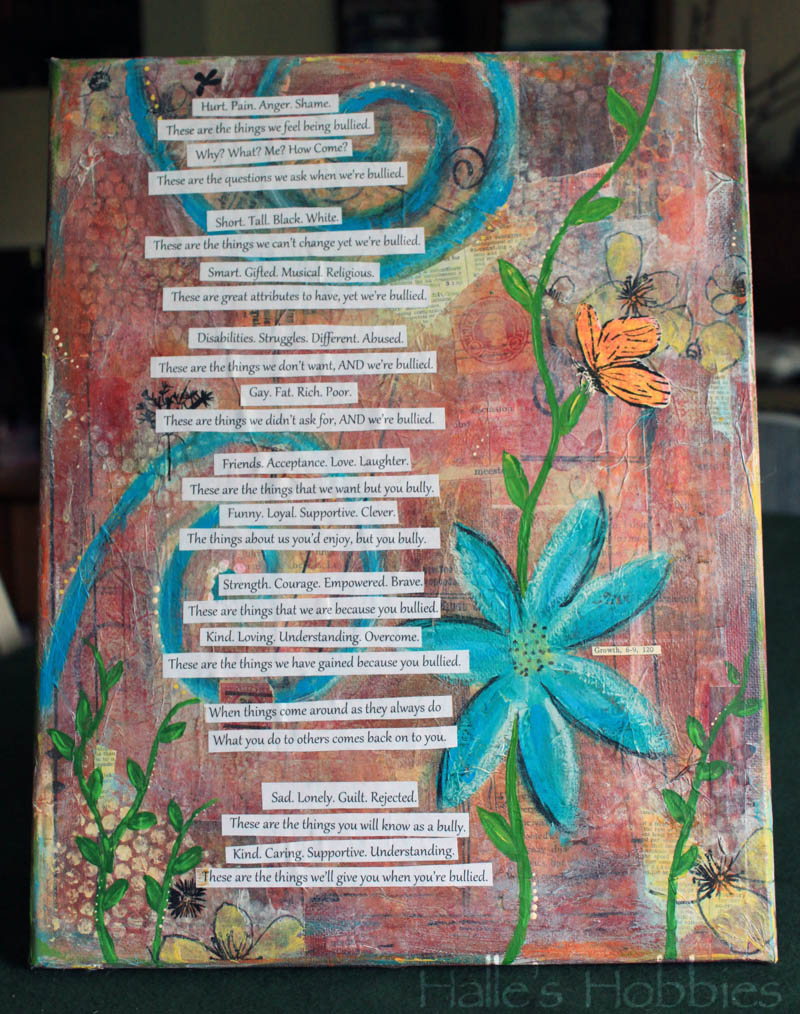 Hurt. Pain. Anger. Shame.
These are the things we feel being bullied.
Why? What? Me? How Come?
These are the questions we ask when we're bullied.
Short. Tall. Black. White.
These are the things we can't change yet we're bullied.
Smart. Gifted. Musical. Religious.
These are great attributes to have, yet we're bullied.
Disabilities. Struggles. Different. Abused.
These are the things we don't want, AND we're bullied.
Gay. Fat. Rich. Poor.
These are things we didn't ask for, AND we're bullied.
Friends. Acceptance. Love. Laughter.
These are the things that we want but you bully.
Funny. Loyal. Supportive. Clever.
The things about us you'd enjoy, but you bully.
Strength. Courage. Empowered. Brave.
These are things that we are because you bullied.
Kind. Loving. Understanding. Overcome.
These are the things we have gained because you bullied.
Growth, 6-9, 120
When things come around as they always do
What you do to others comes back on to you.
Sad. Lonely. Guilt. Rejected.
These are the things you will know as a bully.
Kind. Caring. Supportive. Understanding.
These are the things we'll give you when you're bullied.
Halle's Hobbies